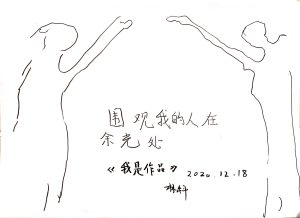 围观我的人在
余光处
《我是作品》 2020.12.18